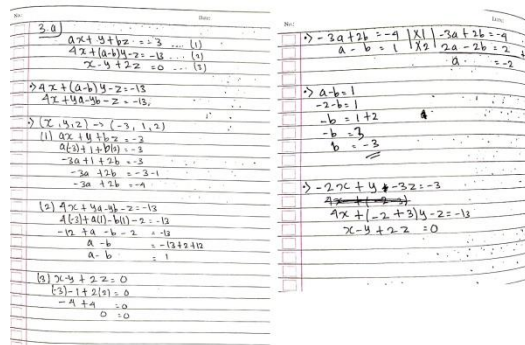 No:
Date:
3.a)
ax + y + bz = -3 .... (1)
4x + (a-b)y - z = -13 ... (2)
x - y + 2z = 0 ... (3)
•> 4x + (a-b)y - z = -13
4x + ya - yb - z = -13
•> (x, y, z) -> (-3, 1, 2)
(1) ax + y + bz = -3
a(-3) + 1 + b(2) = -3
-3a + 1 + 2b = -3
-3a + 2b = -3-1
-3a + 2b = -4
(2) 4x + ya - yb - z = -13
4(-3) + a(1) - b(1) - 2 = -13
-12 + a - b - 2 = -13
a - b = -13+2+12
a - b = 1
(3) x - y + 2z = 0
(-3) - 1 + 2(2) = 0
-4 + 4 = 0
0 = 0
No:
Date:
•> -3a + 2b = -4 | X1 | -3a + 2b = -4
a - b = 1 | X2 | 2a - 2b = 2 +
a = -2
•> a - b = 1
-2 - b = 1
-b = 1+2
-b = 3
b = -3
•> -2x + y - 3z = -3
4x + (-2+3)y - z = -13
x - y + 2z = 0